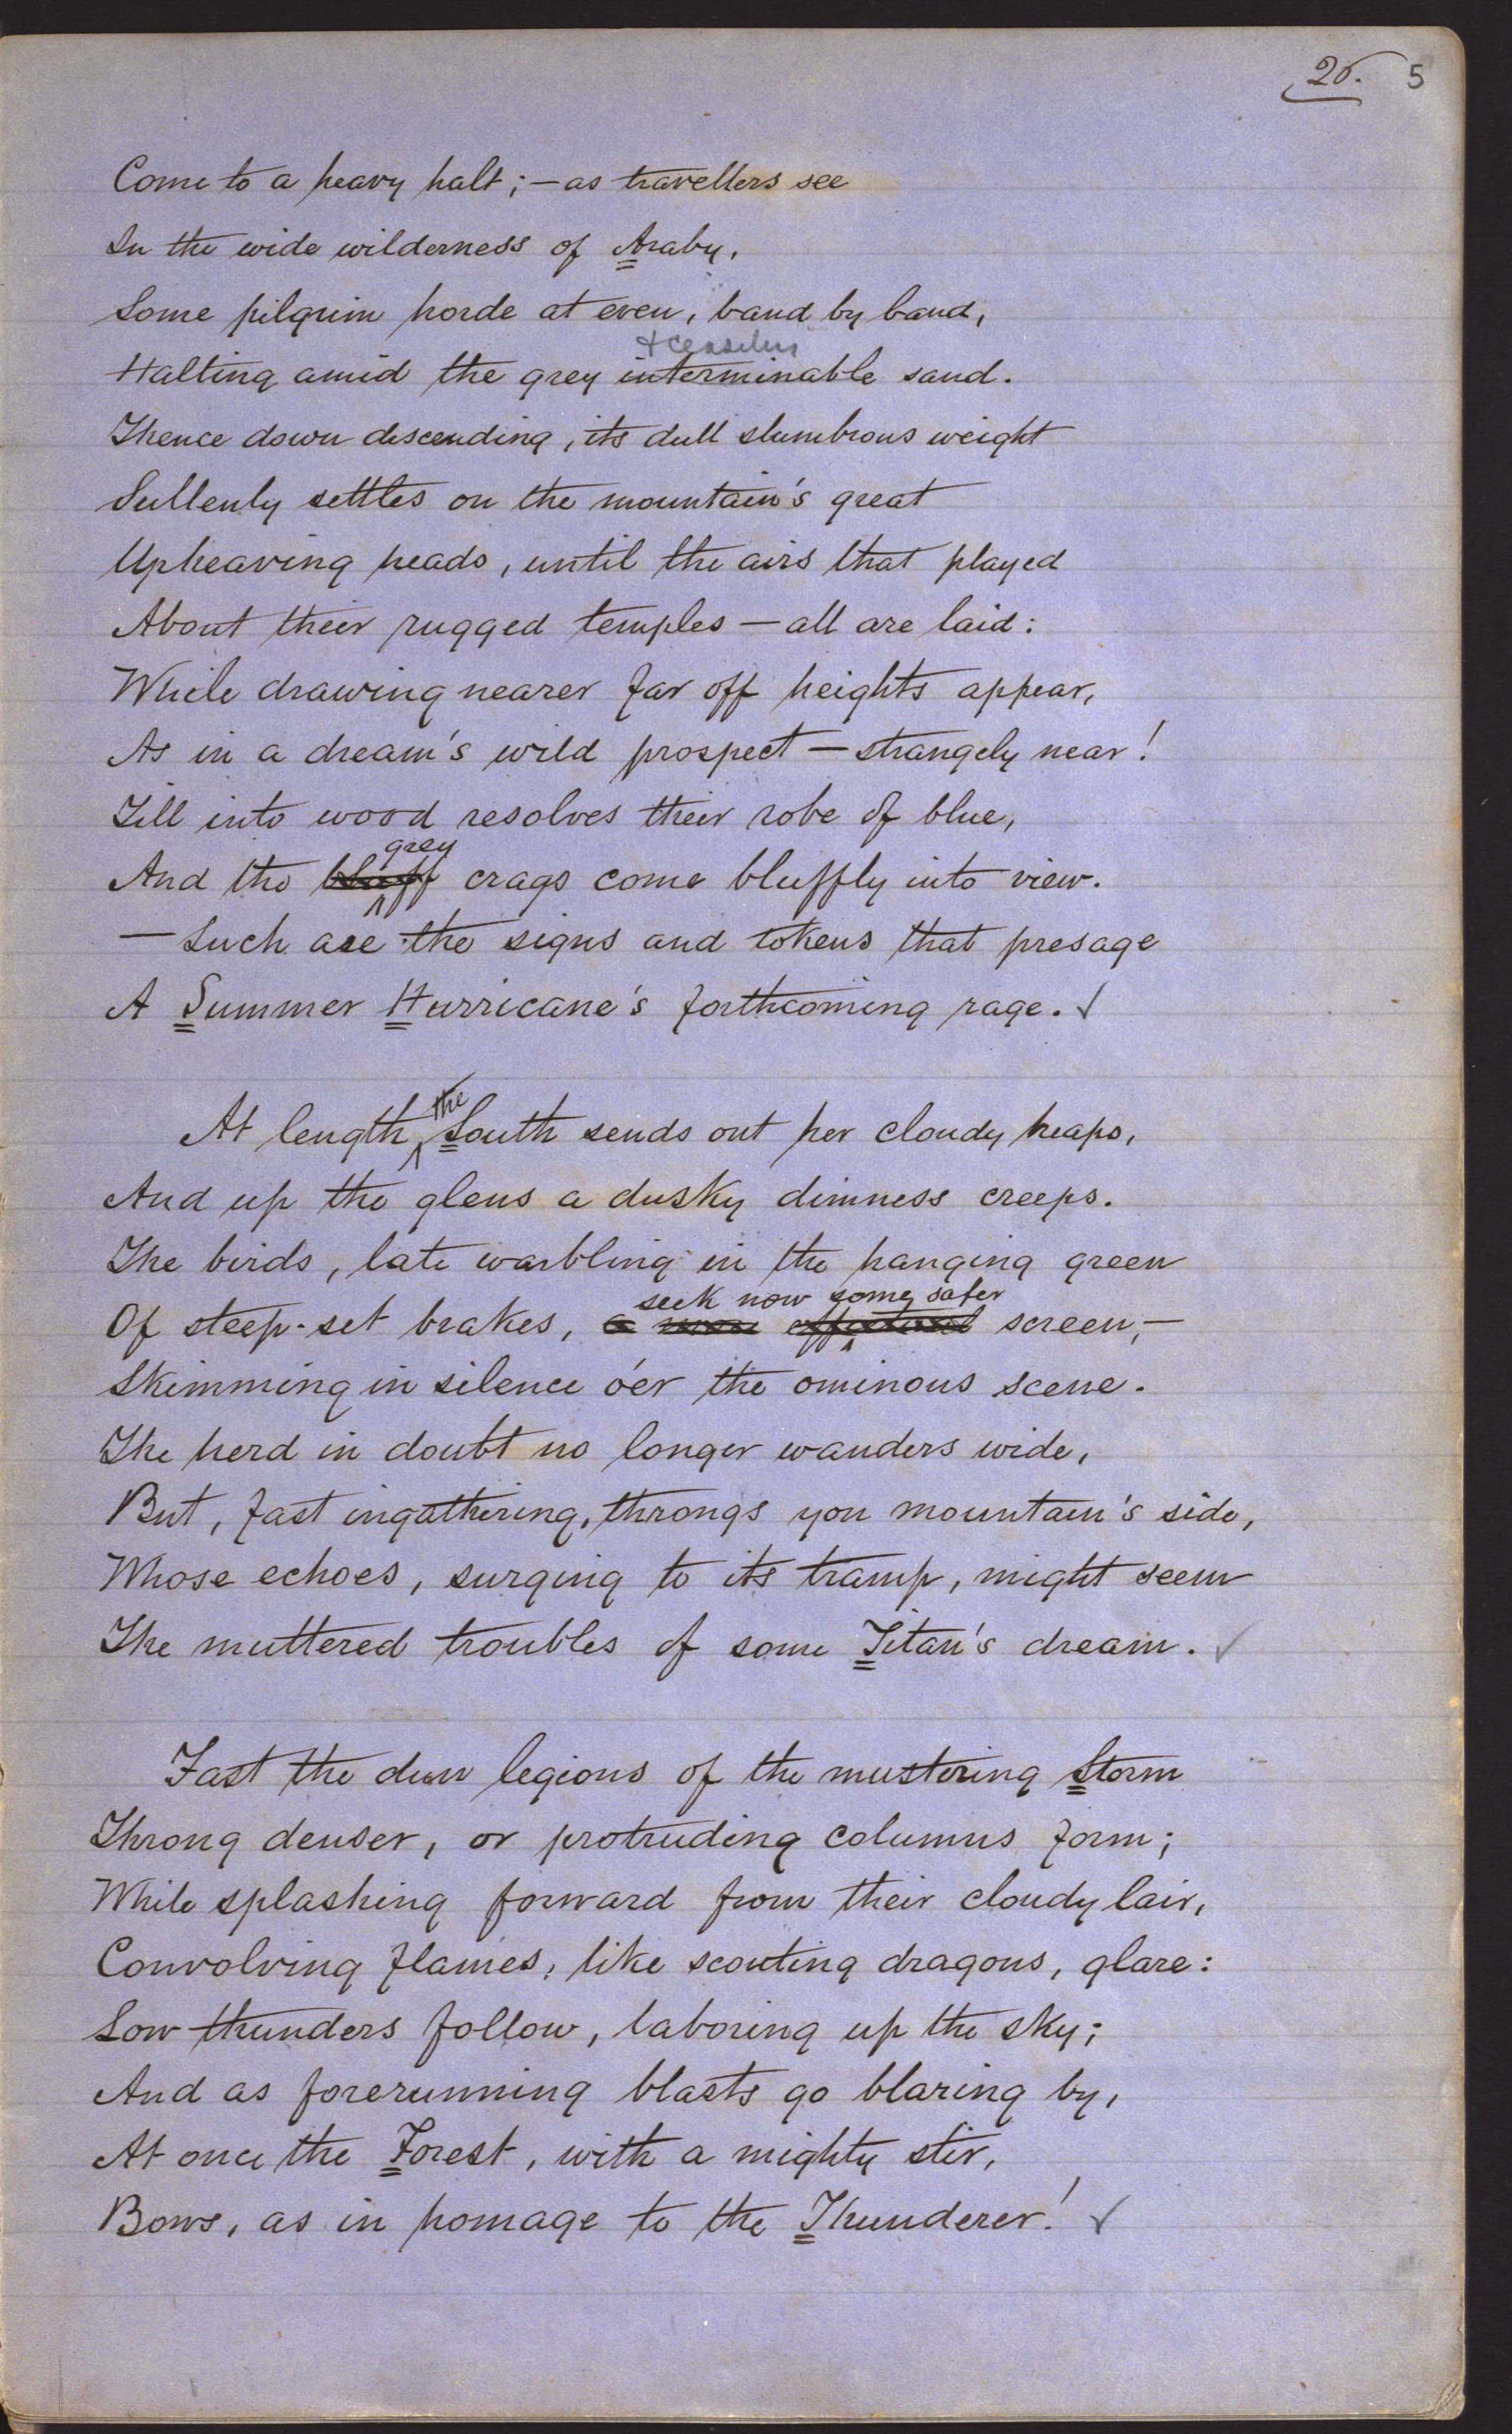 26. 5
Come to a heavy halt; — as travellers see
In the wide wilderness of Araby,
Some pilgrim horde at even, band by band,
& ceaseless
Halting amid the grey interminable sand.
Thence down descending, its dull slumbrous weight
Sullenly settles on the mountain's great
Upheaving heads, until the airs that played
About their rugged temples — all are laid:
While drawing nearer far off heights appear,
As in a dream's wild prospect — strangely near!
Till into wood resolves their robe of blue,
grey
And the bluff crags come bluffly into view.
— Such are the signs and tokens that presage
A Summer Hurricane's forthcoming rage. ✓
the
At length, South sends out her cloudy heaps,
And up the glens a dusky dimness creeps.
The birds, late warbling in the hanging green
seek now some safer
Of steep-set brakes, a more effectual screen, —
Skimming in silence o'er the ominous scene.
The herd in doubt no longer wanders wide,
But, fast ingathering, throngs yon mountain's side,
Whose echoes, surging to its tramp, might seem
The muttered troubles of some Titan's dream. ✓
Fast the dun legions of the mustering Storm
Throng denser, or protruding columns form;
While splashing forward from their cloudy lair,
Convolving flames, like scouting dragons, glare:
Low thunders follow, laboring up the sky;
And as forerunning blasts go blaring by,
At once the Forest, with a mighty stir,
Bows, as in homage to the Thunderer! ✓